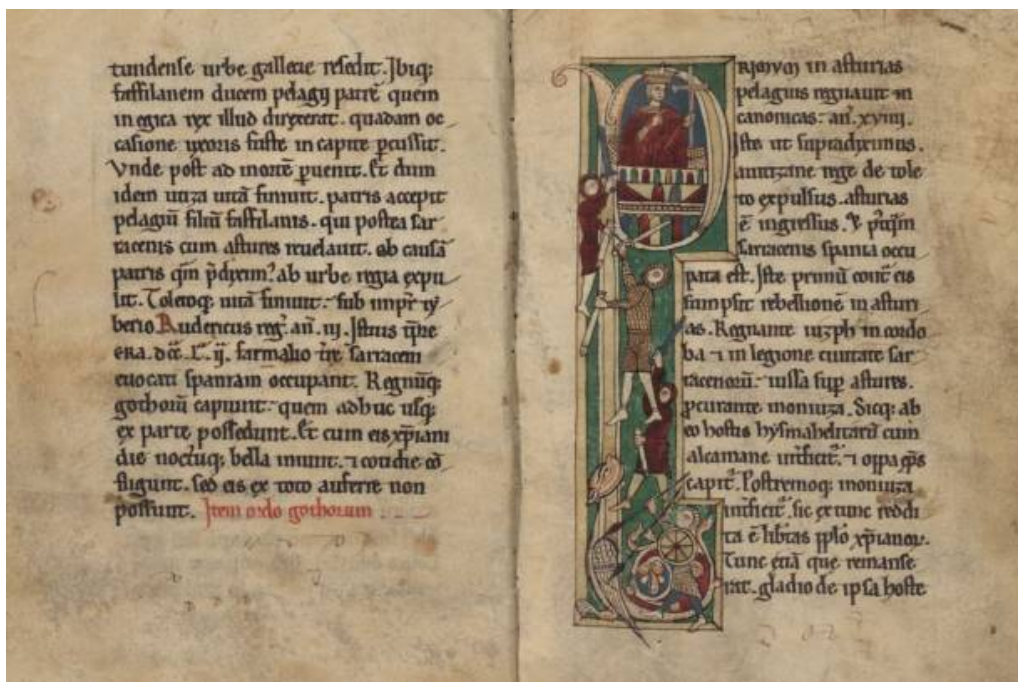 tundense urbe gallecie resedit. Ibiq;
faffilanem ducem pelagij patrē quem
in egica rex illud direxerat. quadam oc
casione uxoris fuste in capite pcussit.
Vnde post ad mortē puenit. Et dum
idem uitiza uitā finiuit. patris accepit
pelagiū filiū faffilanis. qui postea sar
racenis cum astures reuelauit. ob causā
patris qm p̄dixim; ab urbe regia expu
lit. Toletoq; uitā finiuit. sub impr ty
berio Rudericus reg. an. iii. Istius tp̄re
era. dcc. L. ii. farmalio t̄re sarraceni
euocati spaniam occupant. Regnūq;
gothorū capiunt. quem adhuc usq;
ex parte possedunt. Et cum eis xp̄iani
die noctuq; bella iniunt. ⁊ cotidie cō
fligunt. sed eis ex toto auferre non
possunt. Item ordo gothorum
PRIMVM in asturias
pelagius regnauit in
canonicas. an. xviiii.
Iste ut supradiximus.
a uitizane rege de tole
to expulsus. asturias
ē ingressus. & p̄tqm
sarracenis spania occu
pata est. Iste primū cont̄ eis
sumpsit rebellionē in asturi
as. Regnante iuzeph in cordo
ba ⁊ in legione ciuitate sar
racenorū. iussa sup astures.
pcurante monniza. Sicq; ab
eo hostis hysmahelitarū cum
alcamane int̄ficit. ⁊ oppa ep̄s
capit. Postremoq; monniza
int̄ficit. sic ex tunc reddi
ta ē libtas pplo xp̄ianor.
Tunc etiā que remanse
rat. gladio de ipsa hoste